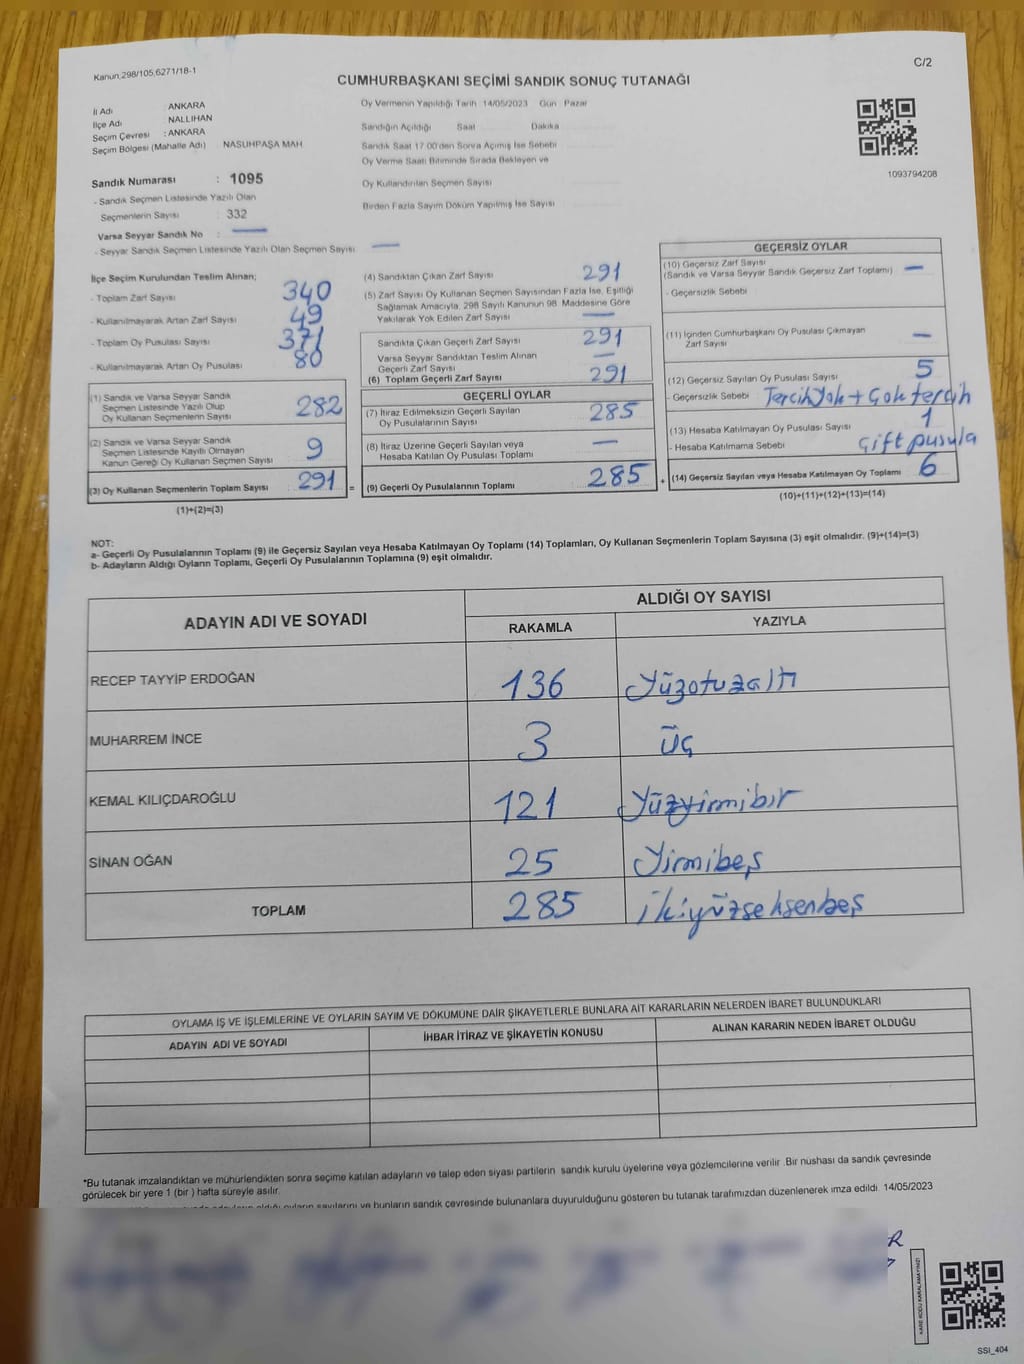 Kanun;298/105,6271/18-1
C/2
CUMHURBAŞKANI SEÇİMİ SANDIK SONUÇ TUTANAĞI
İl Adı : ANKARA
İlçe Adı : NALLIHAN
Seçim Çevresi : ANKARA
Seçim Bölgesi (Mahalle Adı) NASUHPAŞA MAH
Sandık Numarası : 1095
- Sandık Seçmen Listesinde Yazılı Olan
Seçmenlerin Sayısı : 332
Varsa Seyyar Sandık No : —
- Seyyar Sandık Seçmen Listesinde Yazılı Olan Seçmen Sayısı : —
Oy Vermenin Yapıldığı Tarih :14/05/2023 Gün : Pazar
Sandığın Açıldığı Saat Dakika
Sandık Saat 17:00'den Sonra Açılmış İse Sebebi
Oy Verme Saati Bitiminde Sırada Bekleyen ve
Oy Kullandırılan Seçmen Sayısı
Birden Fazla Sayım Döküm Yapılmış İse Sayısı
1093794208
İlçe Seçim Kurulundan Teslim Alınan;
- Toplam Zarf Sayısı 340
- Kullanılmayarak Artan Zarf Sayısı 49
- Toplam Oy Pusulası Sayısı 371
- Kullanılmayarak Artan Oy Pusulası 80
(1) Sandık ve Varsa Seyyar Sandık
Seçmen Listesinde Yazılı Olup
Oy Kullanan Seçmenlerin Sayısı 282
(2) Sandık ve Varsa Seyyar Sandık
Seçmen Listesinde Kayıtlı Olmayan
Kanun Gereği Oy Kullanan Seçmen Sayısı 9
(3) Oy Kullanan Seçmenlerin Toplam Sayısı 291 =
(1)+(2)=(3)
(4) Sandıktan Çıkan Zarf Sayısı 291
(5) Zarf Sayısı Oy Kullanan Seçmen Sayısından Fazla İse, Eşitliği
Sağlamak Amacıyla, 298 Sayılı Kanunun 98. Maddesine Göre
Yakılarak Yok Edilen Zarf Sayısı —
Sandıkta Çıkan Geçerli Zarf Sayısı 291
Varsa Seyyar Sandıktan Teslim Alınan
Geçerli Zarf Sayısı —
(6) Toplam Geçerli Zarf Sayısı 291
GEÇERLİ OYLAR
(7) İtiraz Edilmeksizin Geçerli Sayılan
Oy Pusulalarının Sayısı 285
(8) İtiraz Üzerine Geçerli Sayılan veya
Hesaba Katılan Oy Pusulası Toplamı —
(9) Geçerli Oy Pusulalarının Toplamı 285 +
GEÇERSİZ OYLAR
(10) Geçersiz Zarf Sayısı
(Sandık ve Varsa Seyyar Sandık Geçersiz Zarf Toplamı) —
- Geçersizlik Sebebi
(11) İçinden Cumhurbaşkanı Oy Pusulası Çıkmayan
Zarf Sayısı —
(12) Geçersiz Sayılan Oy Pusulası Sayısı 5
- Geçersizlik Sebebi Tercih Yok + Çok tercih
(13) Hesaba Katılmayan Oy Pusulası Sayısı 1
- Hesaba Katılmama Sebebi Çift pusula
(14) Geçersiz Sayılan veya Hesaba Katılmayan Oy Toplamı 6
(10)+(11)+(12)+(13)=(14)
NOT:
a- Geçerli Oy Pusulalarının Toplamı (9) ile Geçersiz Sayılan veya Hesaba Katılmayan Oy Toplamı (14) Toplamları, Oy Kullanan Seçmenlerin Toplam Sayısına (3) eşit olmalıdır. (9)+(14)=(3)
b- Adayların Aldığı Oyların Toplamı, Geçerli Oy Pusulalarının Toplamına (9) eşit olmalıdır.
ADAYIN ADI VE SOYADI
ALDIĞI OY SAYISI
RAKAMLA YAZIYLA
RECEP TAYYİP ERDOĞAN 136 Yüzotuzaltı
MUHARREM İNCE 3 Üç
KEMAL KILIÇDAROĞLU 121 Yüzyirmibir
SİNAN OĞAN 25 Yirmibeş
TOPLAM 285 ikiyüzseksenbeş
OYLAMA İŞ VE İŞLEMLERİNE VE OYLARIN SAYIM VE DÖKÜMÜNE DAİR ŞİKAYETLERLE BUNLARA AİT KARARLARIN NELERDEN İBARET BULUNDUKLARI
ADAYIN ADI VE SOYADI İHBAR İTİRAZ VE ŞİKAYETİN KONUSU ALINAN KARARIN NEDEN İBARET OLDUĞU
*Bu tutanak imzalandıktan ve mühürlendikten sonra seçime katılan adayların ve talep eden siyasi partilerin sandık kurulu üyelerine veya gözlemcilerine verilir .Bir nüshası da sandık çevresinde
görülecek bir yere 1 (bir ) hafta süreyle asılır.
aldığı oyların sayılarını ve bunların sandık çevresinde bulunanlara duyurulduğunu gösteren bu tutanak tarafımızdan düzenlenerek imza edildi. 14/05/2023
KARE KODU KARALAMAYINIZ!
SSI_404